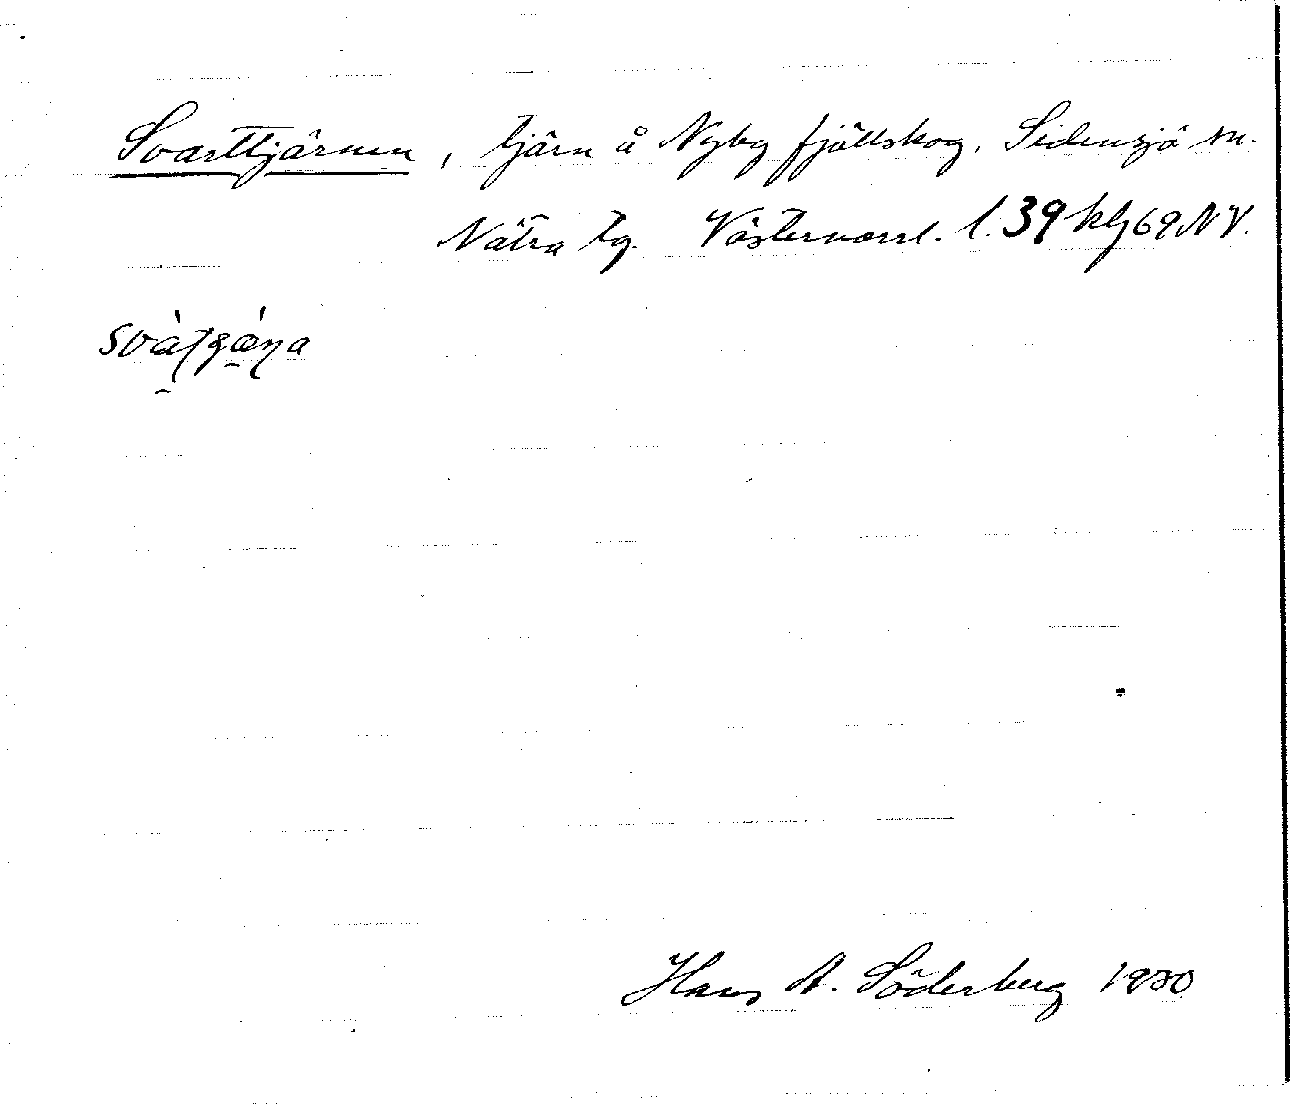 Svarttjärnen, tjärn å Nyby fjällskog, Sidensjö sn.
Nätra tg. Västernorrl. l. 39 klj 69 NV.
Hans A. Söderberg 1930